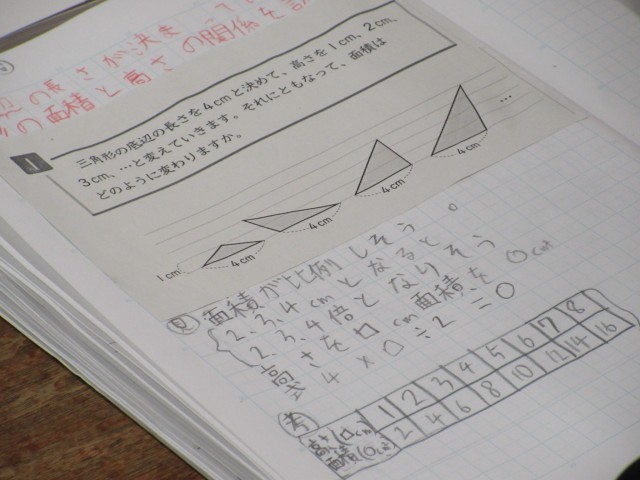 辺の長さが決ま
の面積と高さの関係を
1
三角形の底辺の長さを4cmと決めて、高さを1cm、2cm、
3cm、…と変えていきます。それにともなって、面積は
どのように変わりますか。
…
1cm
4cm
4cm
4cm
4cm
見 面積が比例しそう。
2、3、4cmとなると
2、3、4倍となりそう
高さを□cm 面積を○cm²
4×□÷2=○
考
高さ(□cm) 1 2 3 4 5 6 7 8
面積(○cm²) 2 4 6 8 10 12 14 16